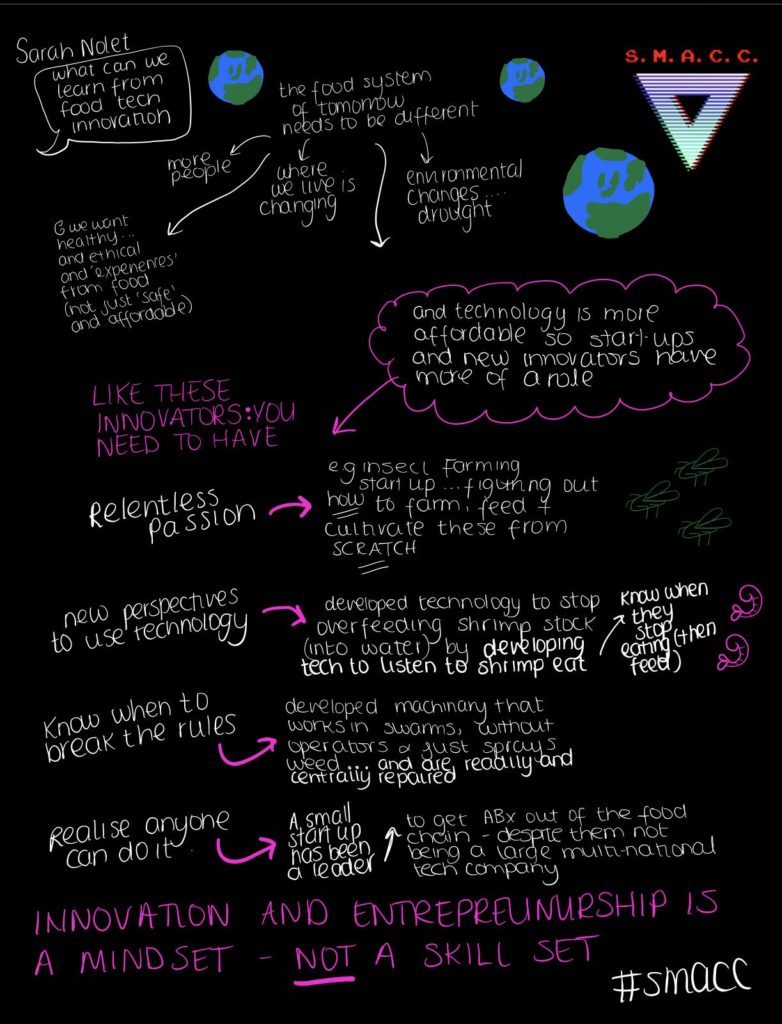 Sarah Nolet
what can we
learn from
food tech
innovation
S.M.A.C.C.
the food system
of tomorrow
needs to be different
more
people
where
we live is
changing
environmental
changes....
drought
& we want
healthy...
and ethical
and 'experiences'
from food
(not just 'safe'
and affordable)
and technology is more
affordable so start-ups
and new innovators have
more of a role
LIKE THESE
INNOVATORS: YOU
NEED TO HAVE
Relentless
passion
e.g insect farming
start up... figuring out
how to farm, feed +
cultivate these from
SCRATCH
new perspectives
to use technology
developed technology to stop
overfeeding shrimp stock
(into water) by developing
tech to listen to shrimp eat
know when
they
stop
eating (then
feed)
Know when to
break the rules
developed machinary that
works in swarms, without
operators & just sprays
weed... and are readily and
centrally repaired
Realise anyone
can do it
A small
start up
has been
a leader
to get ABx out of the food
chain - despite them not
being a large multi-national
tech company
INNOVATION AND ENTREPREUNURSHIP IS
A MINDSET - NOT A SKILL SET
#smacc